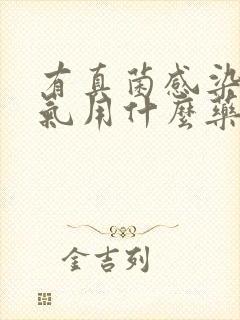 有真菌感染
氣用什麼藥
金吉列